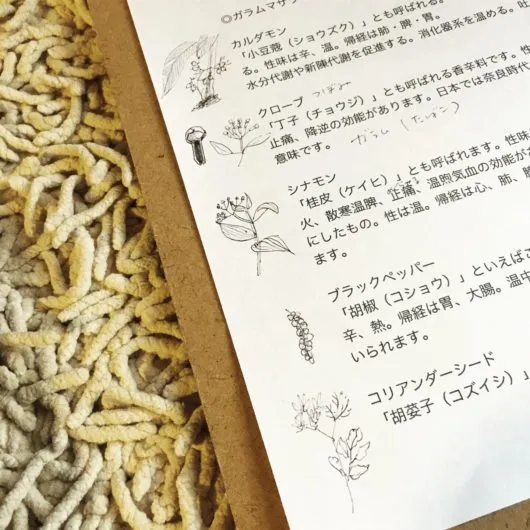 ◎ガラムマサラ
カルダモン
「小豆蔻(ショウズク)」とも呼ばれる
る。性味は辛、温。帰経は肺・脾・胃。
水分代謝や新陳代謝を促進する。消化器系を温める。
クローブ つぼみ
「丁子(チョウジ)」とも呼ばれる香辛料です。
止痛、降逆の効能があります。日本では奈良時代
意味です。 ガラム(たばこ)
シナモン
「桂皮(ケイヒ)」とも呼ばれます。性
火、散寒温脾、止痛、温煦気血の効能が
にしたもの。性は温。帰経は心、肺、
ます。
ブラックペッパー
「胡椒(コショウ)」といえばこ
辛、熱。帰経は胃、大腸。温中
いられます。
コリアンダーシード
「胡荽子(コズイシ)」